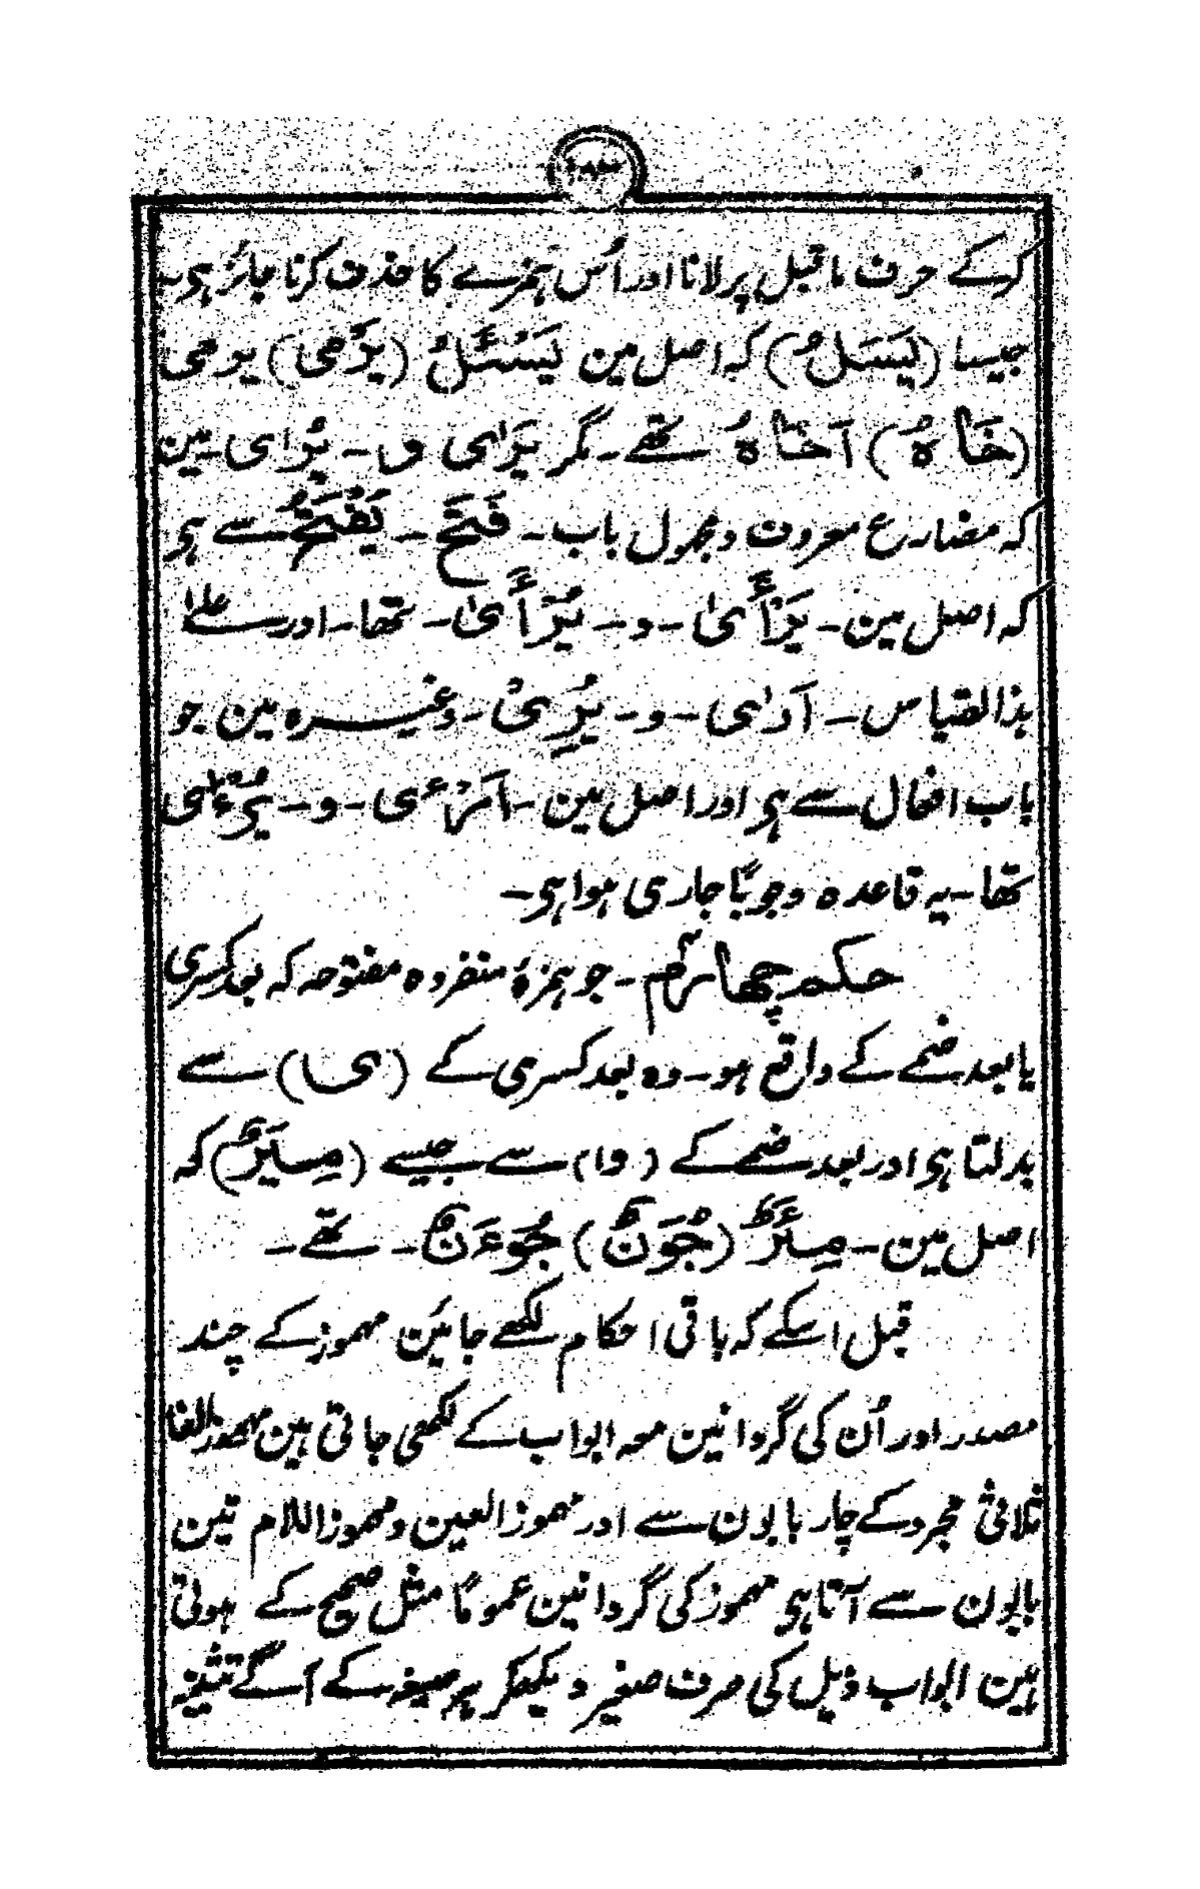 کرکے حرف ماقبل پر لانا اور اُس ہمزے کا حذف کرنا جائز ہی
جیسا (یَسَلُ) کہ اصل مین یَسْئَلُ (یَرْمِی) یرمی
(خَاہُ) آخَاہُ تھے۔ مگر یَرٰی و۔ یُرٰی۔ مین
کہ مضارع معروف و مجہول باب۔ فَتَحَ۔ یَفْتَحُ سے ہی
کہ اصل مین۔ یَرْأَیُ۔ و۔ یُرْأَیُ۔ تھا۔ اور علے
ہذا القیاس۔ آرٰی۔ و۔ یُرِیْ۔ وغیرہ مین جو
باب افعال سے ہی اور اصل مین۔ اَرْءَی۔ و۔ یُرْءِی
تھا۔ یہ قاعدہ وجوبًا جاری ہوا ہی۔
حکم چہارم۔ جو ہمزۂ منفردہ مفتوحہ کہ بعد کسری
یا بعد ضمے کے واقع ہو۔ وہ بعد کسری کے (یا) سے
بدلتا ہی اور بعد ضمے کے (وا) سے جیسے (مِیَرٌ) کہ
اصل مین۔ مِئَرٌ (جُوَنٌ) جُوءَنٌ۔ تھے۔
قبل اسکے کہ باقی احکام لکھے جائین مہموز کے چند
مصدر اور اُن کی گردانین معہ ابواب کے لکھی جاتی ہین مہموز الفا
ثلاثی مجرد کے چار بابون سے اور مہموز العین و مہموز اللام تین
بابون سے آتا ہی مہموز کی گردانین عمومًا مثل صحیح کے ہوتی
ہین ابواب ذیل کی صرف صغیر دیکھکر ہر صیغہ کے آگے تثنیہ